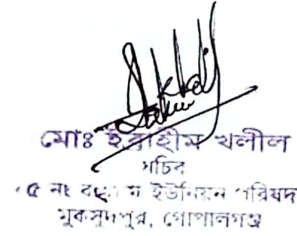 মোঃ ইব্রাহীম খলীল
সচিব
৫ নং ইউনিয়ন পরিষদ
মুকসুদপুর, গোপালগঞ্জ